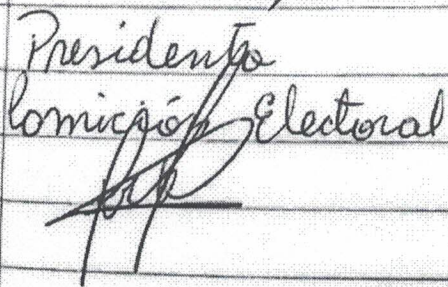 Presidenta
Comición Electoral